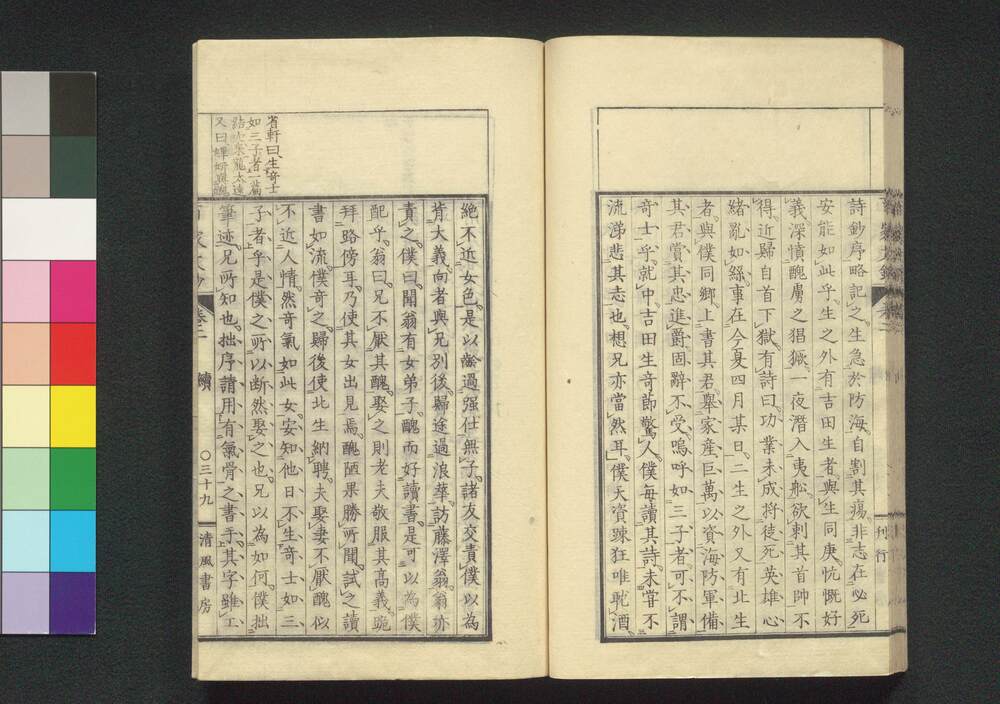 詩鈔序略記之生急於防海自割其瘍非志在必死
安能如此乎生之外有吉田生者與生同庚忼慨好
義深憤醜虜之猖獗一夜潛入夷舩欲刺其首帥不
得近歸自首下獄有詩曰功業未成將徒死英雄心
緒亂如絲事在今夏四月某日二生之外又有北生
者與僕同鄉上書其君舉家産巨萬以資海防軍備
其君賞其忠進爵固辭不受嗚呼如三子者可不謂
奇士乎就中吉田生奇節驚人僕毎讀其詩未嘗不
流涕悲其志也想兄亦當然耳僕天資疎狂唯耽酒
刊行
絶不近女色是以齡過强仕無子諸友交責僕以為
肯大義向者與兄別後歸途過浪華訪藤澤翁翁亦
責之僕曰聞翁有女弟子醜而好讀書是可以為僕
配乎翁曰兄不厭其醜娶之則老夫敬服其高義跪
拜路傍耳乃使其女出見焉醜陋果勝所聞試之讀
書如流僕奇之歸後使北生納聘夫娶妻不厭醜似
不近人情然奇氣如此女安知他日不生奇士如三
子者乎是僕之所以断然娶之也兄以為如何僕拙
筆迹兄所知也拙序請用有氣骨之書手其字雖工
省軒曰生奇士
如三子者一篇
結來龍太遠
又曰
卷二
續
○三十九
清風書房